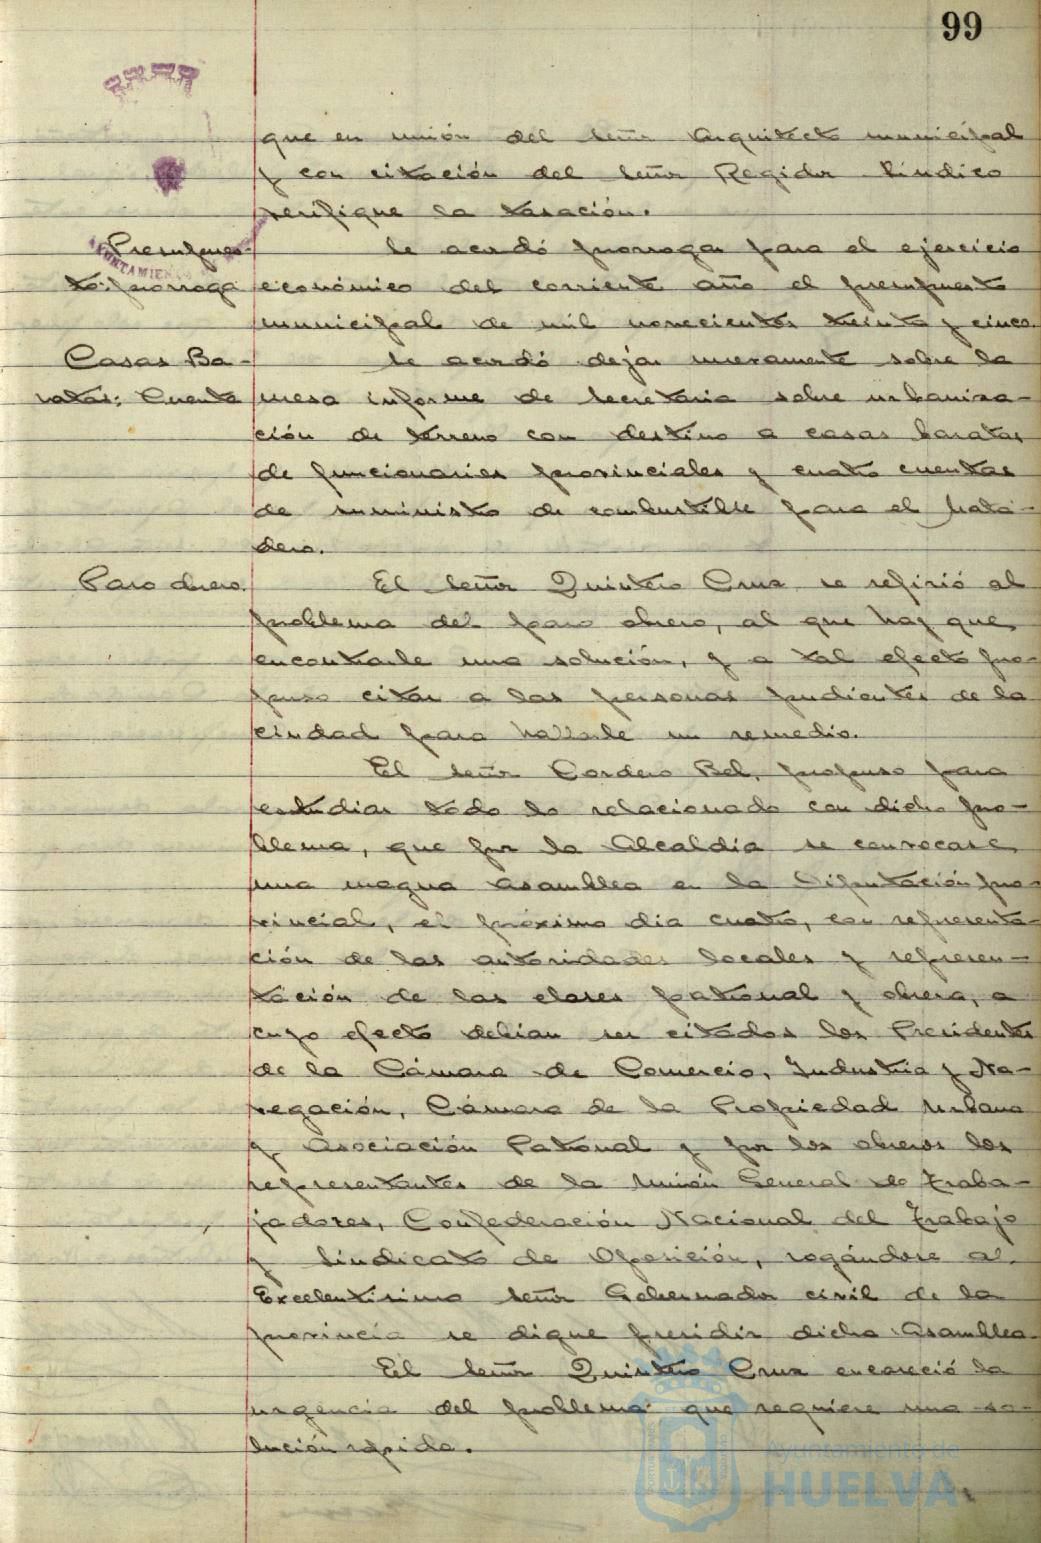 99
que en unión del señor Arquitecto municipal
y con citación del señor Regidor Síndico
verifique la tasación.
Presupues-
to: prórroga
Se acordó prorrogar para el ejercicio
económico del corriente año el presupuesto
municipal de mil novecientos treinta y cinco.
Casas Ba-
ratas: Cuenta
Se acordó dejar nuevamente sobre la
mesa informe de Secretaria sobre urbaniza-
ción de terreno con destino a casas baratas
de funcionarios provinciales y cuatro cuentas
de suministro de combustible para el Mata-
dero.
Paro obrero.
El señor Quintero Cruz se refirió al
problema del paro obrero, al que hay que
encontrarle una solución, y a tal efecto pro-
puso citar a las personas pudientes de la
ciudad para hallarle un remedio.
El señor Cordero Bel, propuso para
estudiar todo lo relacionado con dicho pro-
blema, que por la Alcaldía se convocase
una magna asamblea en la Diputación pro-
vincial, el próximo dia cuatro, con representa-
ción de las autoridades locales y represen-
tación de las clases patronal y obrera, a
cuyo efecto debian ser citados los Presidentes
de la Cámara de Comercio, Industria y Na-
vegación, Cámara de la Propiedad Urbana
y Asociación Patronal y por los obreros los
representantes de la Unión General de Traba-
jadores, Confederación Nacional del Trabajo
y Sindicato de Oposición, rogándose al
Excelentísimo señor Gobernador civil de la
provincia se digne presidir dicha Asamblea.
El señor Quintero Cruz encareció la
urgencia del problema que requiere una so-
lución rápida.
Ayuntamiento de
HUELVA